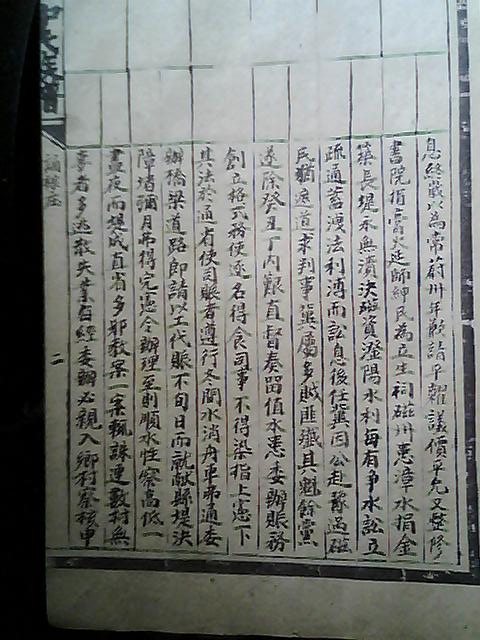 息終歲以為常蔚州年歉請平糶議價平允又整修
書院捐膏火延師紳民為立生祠磁州患漳水捐金
築長堤永無潰決磁資滏陽水利每有爭水訟立
疏通蓄洩法利溥而訟息後任冀因公赴豫過磁
民猶遮道求判事冀屬多賊匪殲其魁餘黨
遂除癸丑丁內艱直督奏留值水患委辦賑務
創立格式務使逐名得食司事不得染指上憲下
其法於通省使司賑者遵行冬間水消舟車弗通委
辦橋梁道路即請以工代賑不旬日而就獻縣堤決
障堵彌月弗得完憲令辦理至則順水性察高低一
晝夜而堤成直省多邪教案一案輒誅連數村無
辜者多逃散失業每經委辦必親入鄉村察核申
二